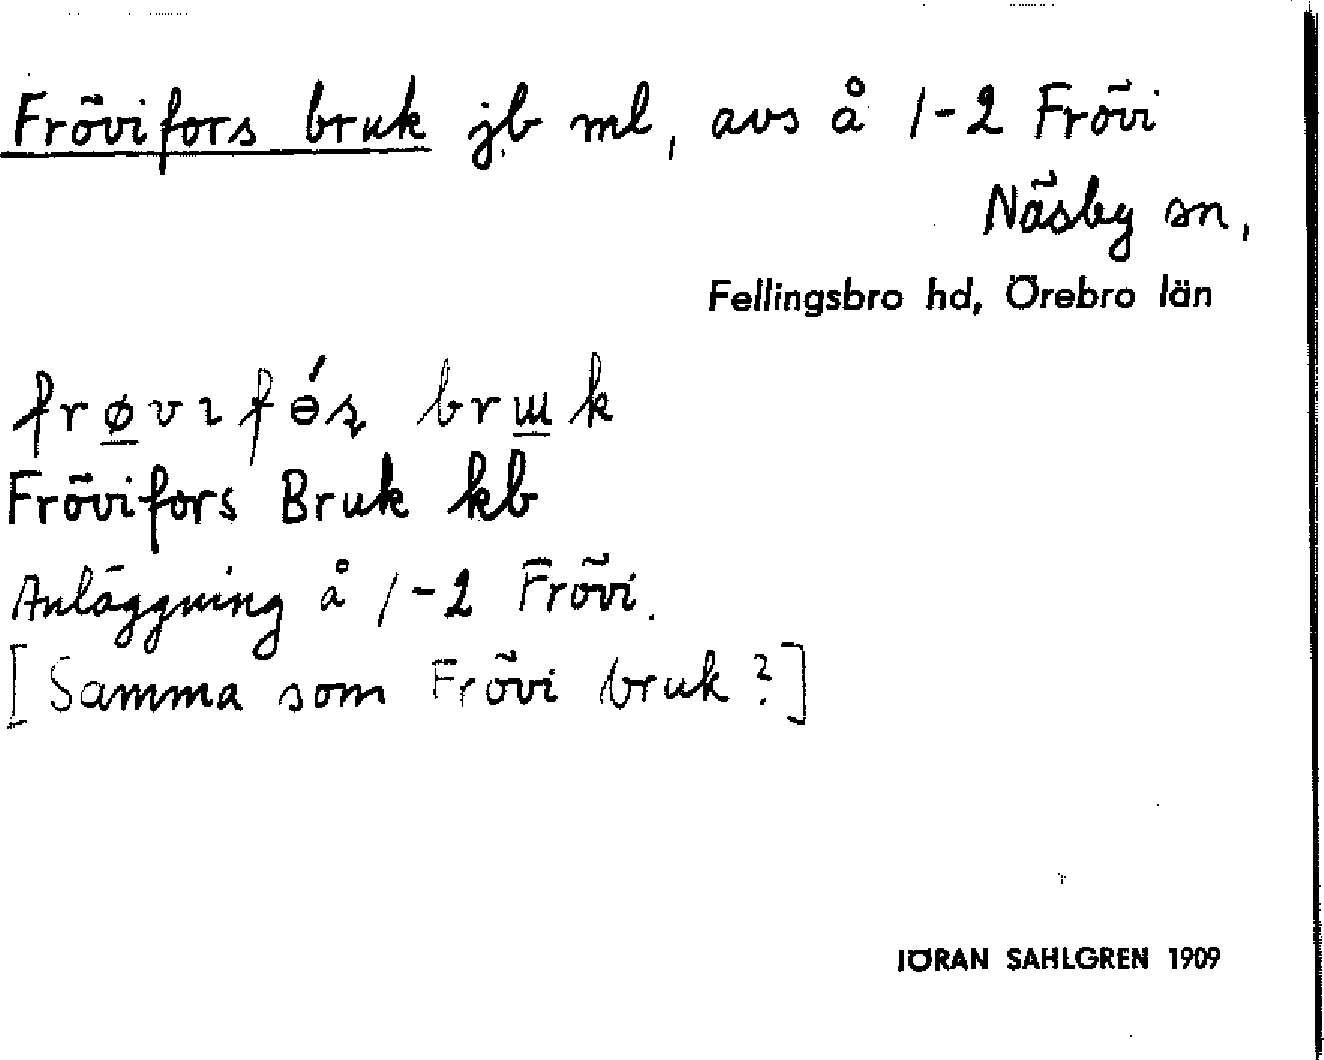 Frövifors bruk jb ml, avs å 1-2 Frövi
Näsby sn,
Fellingsbro hd, Örebro län
frøvifɵ́ʂ brɯk
Frövifors Bruk kb
Anläggning å 1-2 Frövi.
[Samma som Frövi bruk?]
JÖRAN SAHLGREN 1909